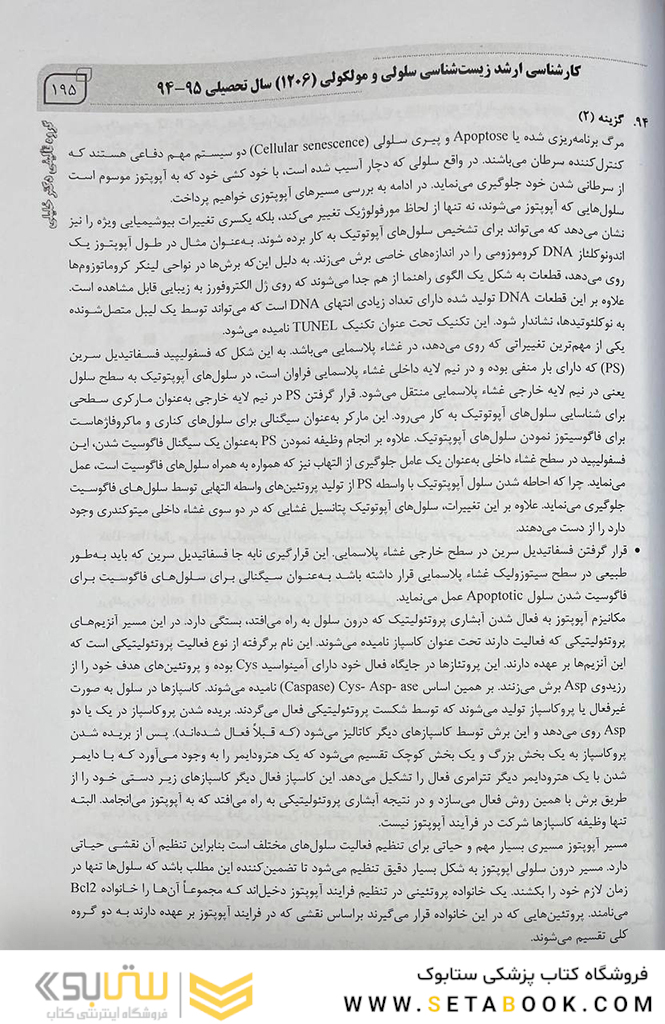 کارشناسی ارشد زیست‌شناسی سلولی و مولکولی (۱۲۰۶) سال تحصیلی ۹۵-۹۴
۱۹۵
۹۴. گزینه (۲)
مرگ برنامه‌ریزی شده یا Apoptose و پیری سلولی (Cellular senescence) دو سیستم مهم دفاعی هستند که
کنترل‌کننده سرطان می‌باشند. در واقع سلولی که دچار آسیب شده است، با خود کشی خود که به آپوپتوز موسوم است
از سرطانی شدن خود جلوگیری می‌نماید. در ادامه به بررسی مسیرهای آپوپتوزی خواهیم پرداخت.
سلول‌هایی که آپوپتوز می‌شوند، نه تنها از لحاظ مورفولوژیک تغییر می‌کند، بلکه یکسری تغییرات بیوشیمیایی ویژه را نیز
نشان می‌دهد که می‌تواند برای تشخیص سلول‌های آپوتوتیک به کار برده شوند. به‌عنوان مثال در طول آپوپتوز یک
اندونوکلئاز DNA کروموزومی را در اندازه‌های خاصی برش می‌زند. به دلیل این‌که برش‌ها در نواحی لینکر کروماتوزوم‌ها
روی می‌دهد، قطعات به شکل یک الگوی راهنما از هم جدا می‌شوند که روی ژل الکتروفورز به زیبایی قابل مشاهده است.
علاوه بر این قطعات DNA تولید شده دارای تعداد زیادی انتهای DNA است که می‌تواند توسط یک لیبل متصل‌شونده
به نوکلئوتیدها، نشاندار شود. این تکنیک تحت عنوان تکنیک TUNEL نامیده می‌شود.
یکی از مهم‌ترین تغییراتی که روی می‌دهد، در غشاء پلاسمایی می‌باشد. به این شکل که فسفولیپید فسفاتیدیل سرین
(PS) که دارای بار منفی بوده و در نیم لایه داخلی غشاء پلاسمایی فراوان است، در سلول‌های آپوپتوتیک به سطح سلول
یعنی در نیم لایه خارجی غشاء پلاسمایی منتقل می‌شود. قرار گرفتن PS در نیم لایه خارجی به‌عنوان مارکری سطحی
برای شناسایی سلول‌های آپوتوتیک به کار می‌رود. این مارکر به‌عنوان سیگنالی برای سلول‌های کناری و ماکروفاژهاست
برای فاگوسیتوز نمودن سلول‌های آپوپتوتیک. علاوه بر انجام وظیفه نمودن PS به‌عنوان یک سیگنال فاگوسیت شدن، این
فسفولیپید در سطح غشاء داخلی به‌عنوان یک عامل جلوگیری از التهاب نیز که همواره به همراه سلول‌های فاگوسیت است، عمل
می‌نماید. چرا که احاطه شدن سلول آپوپتوتیک با واسطه PS از تولید پروتئین‌های واسطه التهابی توسط سلول‌های فاگوسیت
جلوگیری می‌نماید. علاوه بر این تغییرات، سلول‌های آپوتوتیک پتانسیل غشایی که در دو سوی غشاء داخلی میتوکندری وجود
دارد را از دست می‌دهند.
• قرار گرفتن فسفاتیدیل سرین در سطح خارجی غشاء پلاسمایی. این قرارگیری نابه جا فسفاتیدیل سرین که باید به‌طور
طبیعی در سطح سیتوزولیک غشاء پلاسمایی قرار داشته باشد به‌عنوان سیگنالی برای سلول‌های فاگوسیت برای
فاگوسیت شدن سلول Apoptotic عمل می‌نماید.
مکانیزم آپوپتوز به فعال شدن آبشاری پروتئولیتیک که درون سلول به راه می‌افتد، بستگی دارد. در این مسیر آنزیم‌های
پروتئولیتیکی که فعالیت دارند تحت عنوان کاسپاز نامیده می‌شوند. این نام برگرفته از نوع فعالیت پروتئولیتیکی است که
این آنزیم‌ها بر عهده دارند. این پروتئازها در جایگاه فعال خود دارای آمینواسید Cys بوده و پروتئین‌های هدف خود را از
رزیدوی Asp برش می‌زنند. بر همین اساس Cys- Asp- ase ‏(Caspase) نامیده می‌شوند. کاسپازها در سلول به صورت
غیرفعال یا پروکاسپاز تولید می‌شوند که توسط شکست پروتئولیتیکی فعال می‌گردند. بریده شدن پروکاسپاز در یک یا دو
Asp روی می‌دهد و این برش توسط کاسپازهای دیگر کاتالیز می‌شود (که قبلاً فعال شده‌اند). پس از بریده شدن
پروکاسپاز به یک بخش بزرگ و یک بخش کوچک تقسیم می‌شود که یک هترودایمر را به وجود می‌آورد که با دایمر
شدن با یک هترودایمر دیگر تترامری فعال را تشکیل می‌دهد. این کاسپاز فعال دیگر کاسپازهای زیر دستی خود را از
طریق برش با همین روش فعال می‌سازد و در نتیجه آبشاری پروتئولیتیکی به راه می‌افتد که به آپوپتوز می‌انجامد. البته
تنها وظیفه کاسپازها شرکت در فرآیند آپوپتوز نیست.
مسیر آپوپتوز مسیری بسیار مهم و حیاتی برای تنظیم فعالیت سلول‌های مختلف است بنابراین تنظیم آن نقشی حیاتی
دارد. مسیر درون سلولی اپوپتوز به شکل بسیار دقیق تنظیم می‌شود تا تضمین‌کننده این مطلب باشد که سلول‌ها تنها در
زمان لازم خود را بکشند. یک خانواده پروتئینی در تنظیم فرایند آپوپتوز دخیل‌اند که مجموعاً آن‌ها را خانواده Bcl2
می‌نامند. پروتئین‌هایی که در این خانواده قرار می‌گیرند براساس نقشی که در فرایند آپوپتوز بر عهده دارند به دو گروه
کلی تقسیم می‌شوند.
گروه تألیفی دکتر خلیلی
فروشگاه کتاب پزشکی ستابوک
WWW.SETABOOK.COM
ستابوک
فروشگاه اینترنتی کتاب